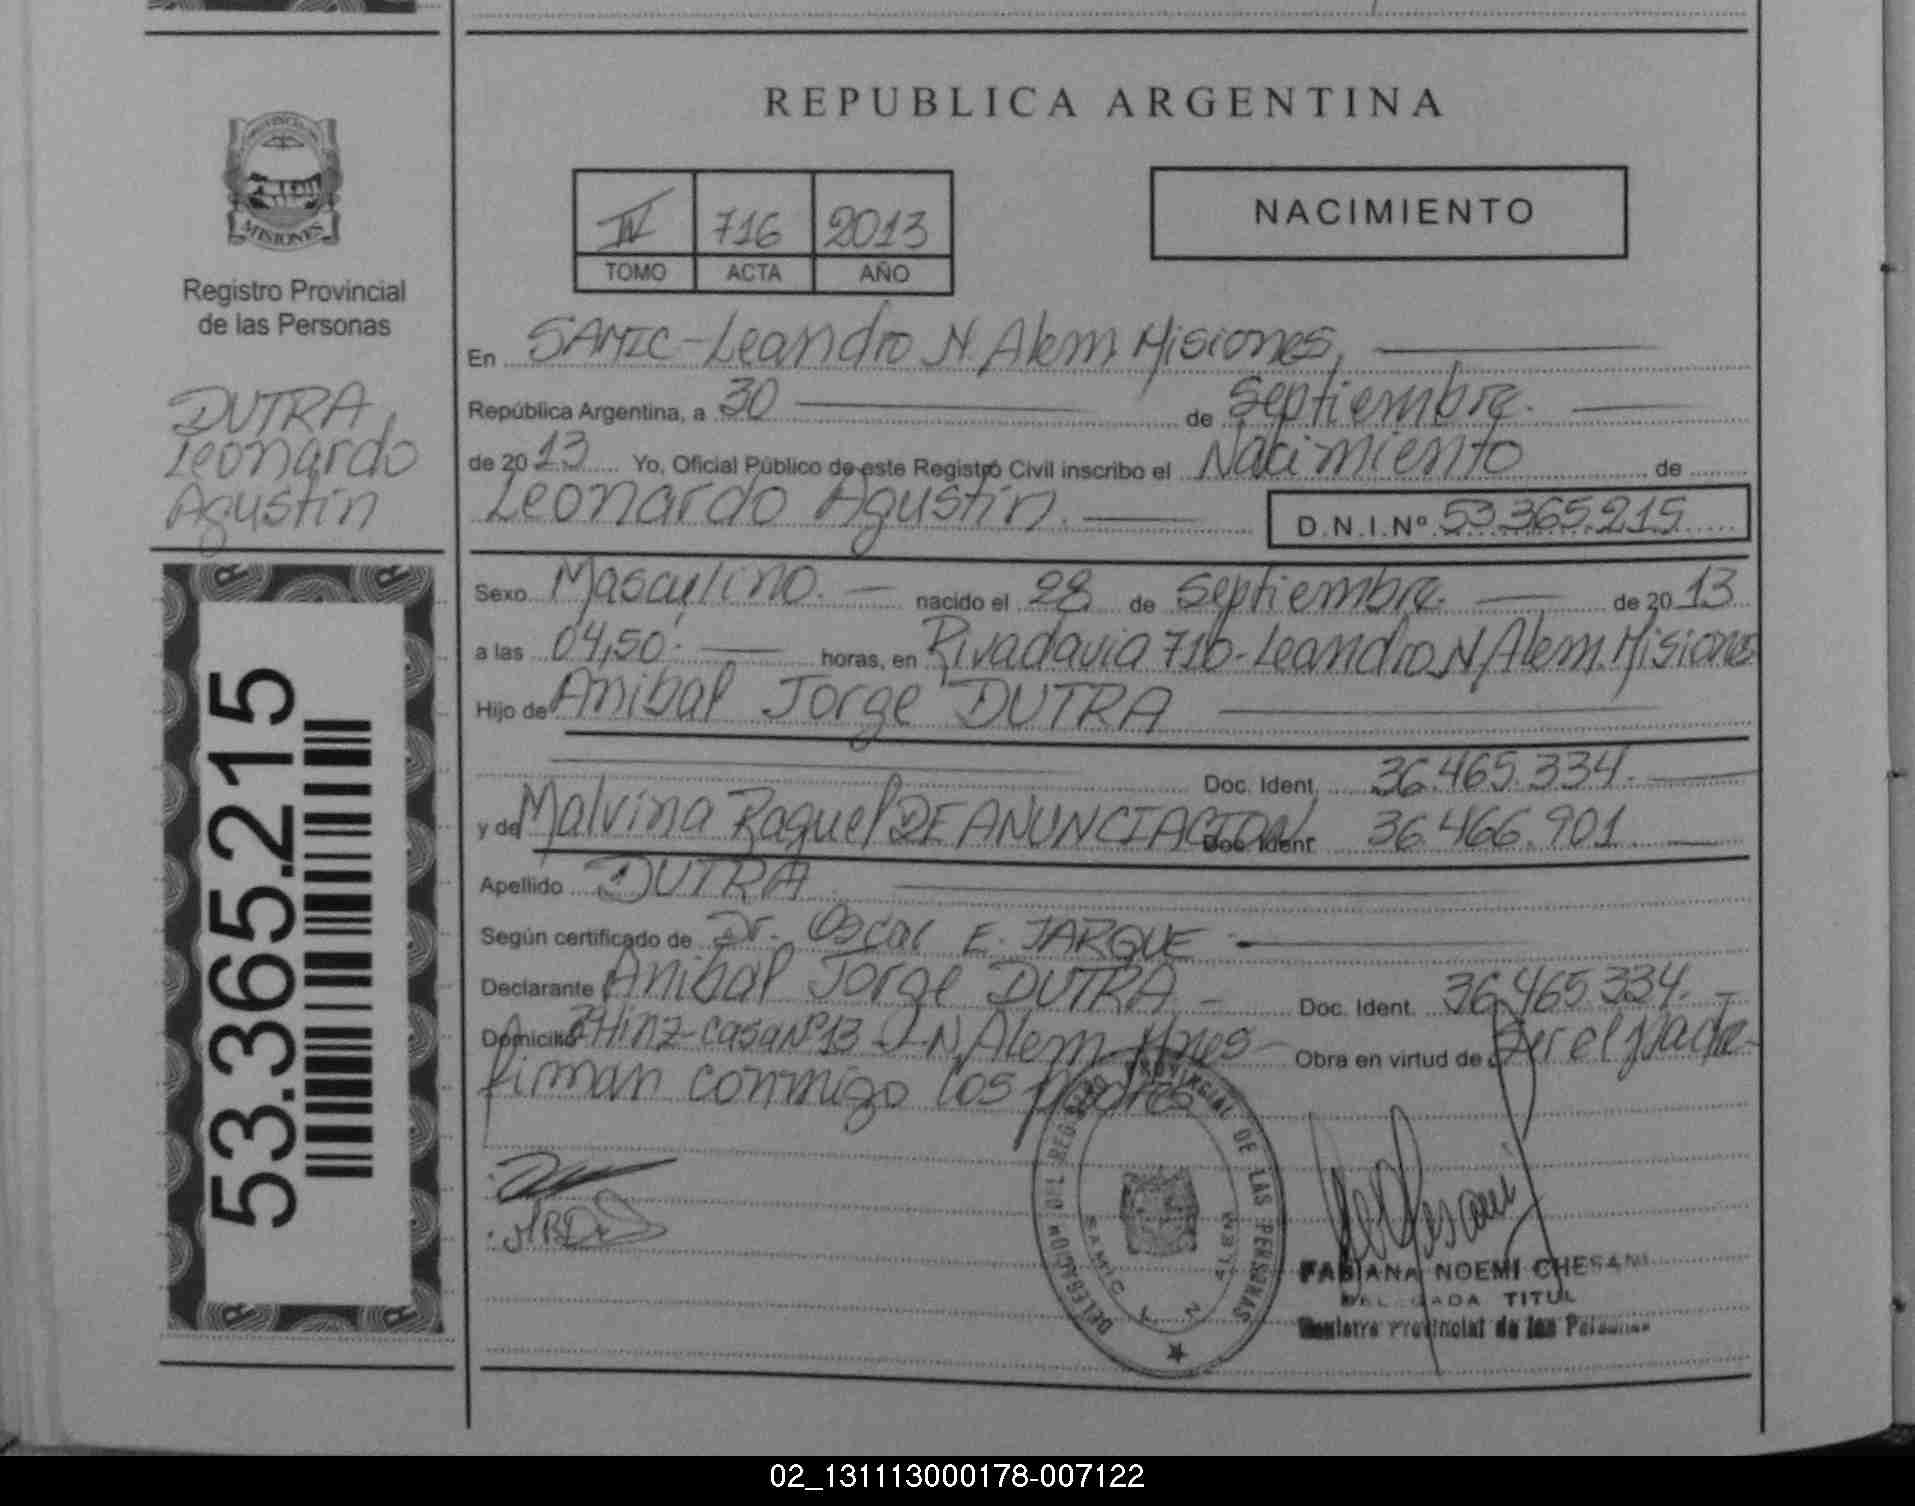 REPUBLICA ARGENTINA
PROVINCIA DE
MISIONES
Registro Provincial
de las Personas
DUTRA,
Leonardo
Agustín
53.365.215
IV 716 2013
TOMO ACTA AÑO
NACIMIENTO
En SAMIC-Leandro N. Alem Misiones,
República Argentina, a 30 de Septiembre.
de 2013 Yo, Oficial Público de este Registro Civil inscribo el Nacimiento de
Leonardo Agustín. D.N.I.Nº 53.365.215
Sexo Masculino. nacido el 28 de Septiembre. de 2013
a las 04,50. horas, en Rivadavia 710-Leandro N Alem. Misiones
Hijo de Anibal Jorge DUTRA
Doc. Ident. 36.465.334.
y de Malvina Raquel DE ANUNCIACION Doc. Ident. 36.466.901
Apellido DUTRA
Según certificado de Dr. Oscar E. JARQUE
Declarante Anibal Jorge DUTRA Doc. Ident. 36.465.334.
Domicilio Hinz-casa Nº13-L-N. Alem Mnes Obra en virtud de Ser el padre
firman conmigo los padres
DELEGACION DEL REGISTRO PROVINCIAL DE LAS PERSONAS
SAMIC L N ALEM
FABIANA NOEMI CHESANI
DELEGADA TITUL
Registro Provincial de las Personas
02_131113000178-007122